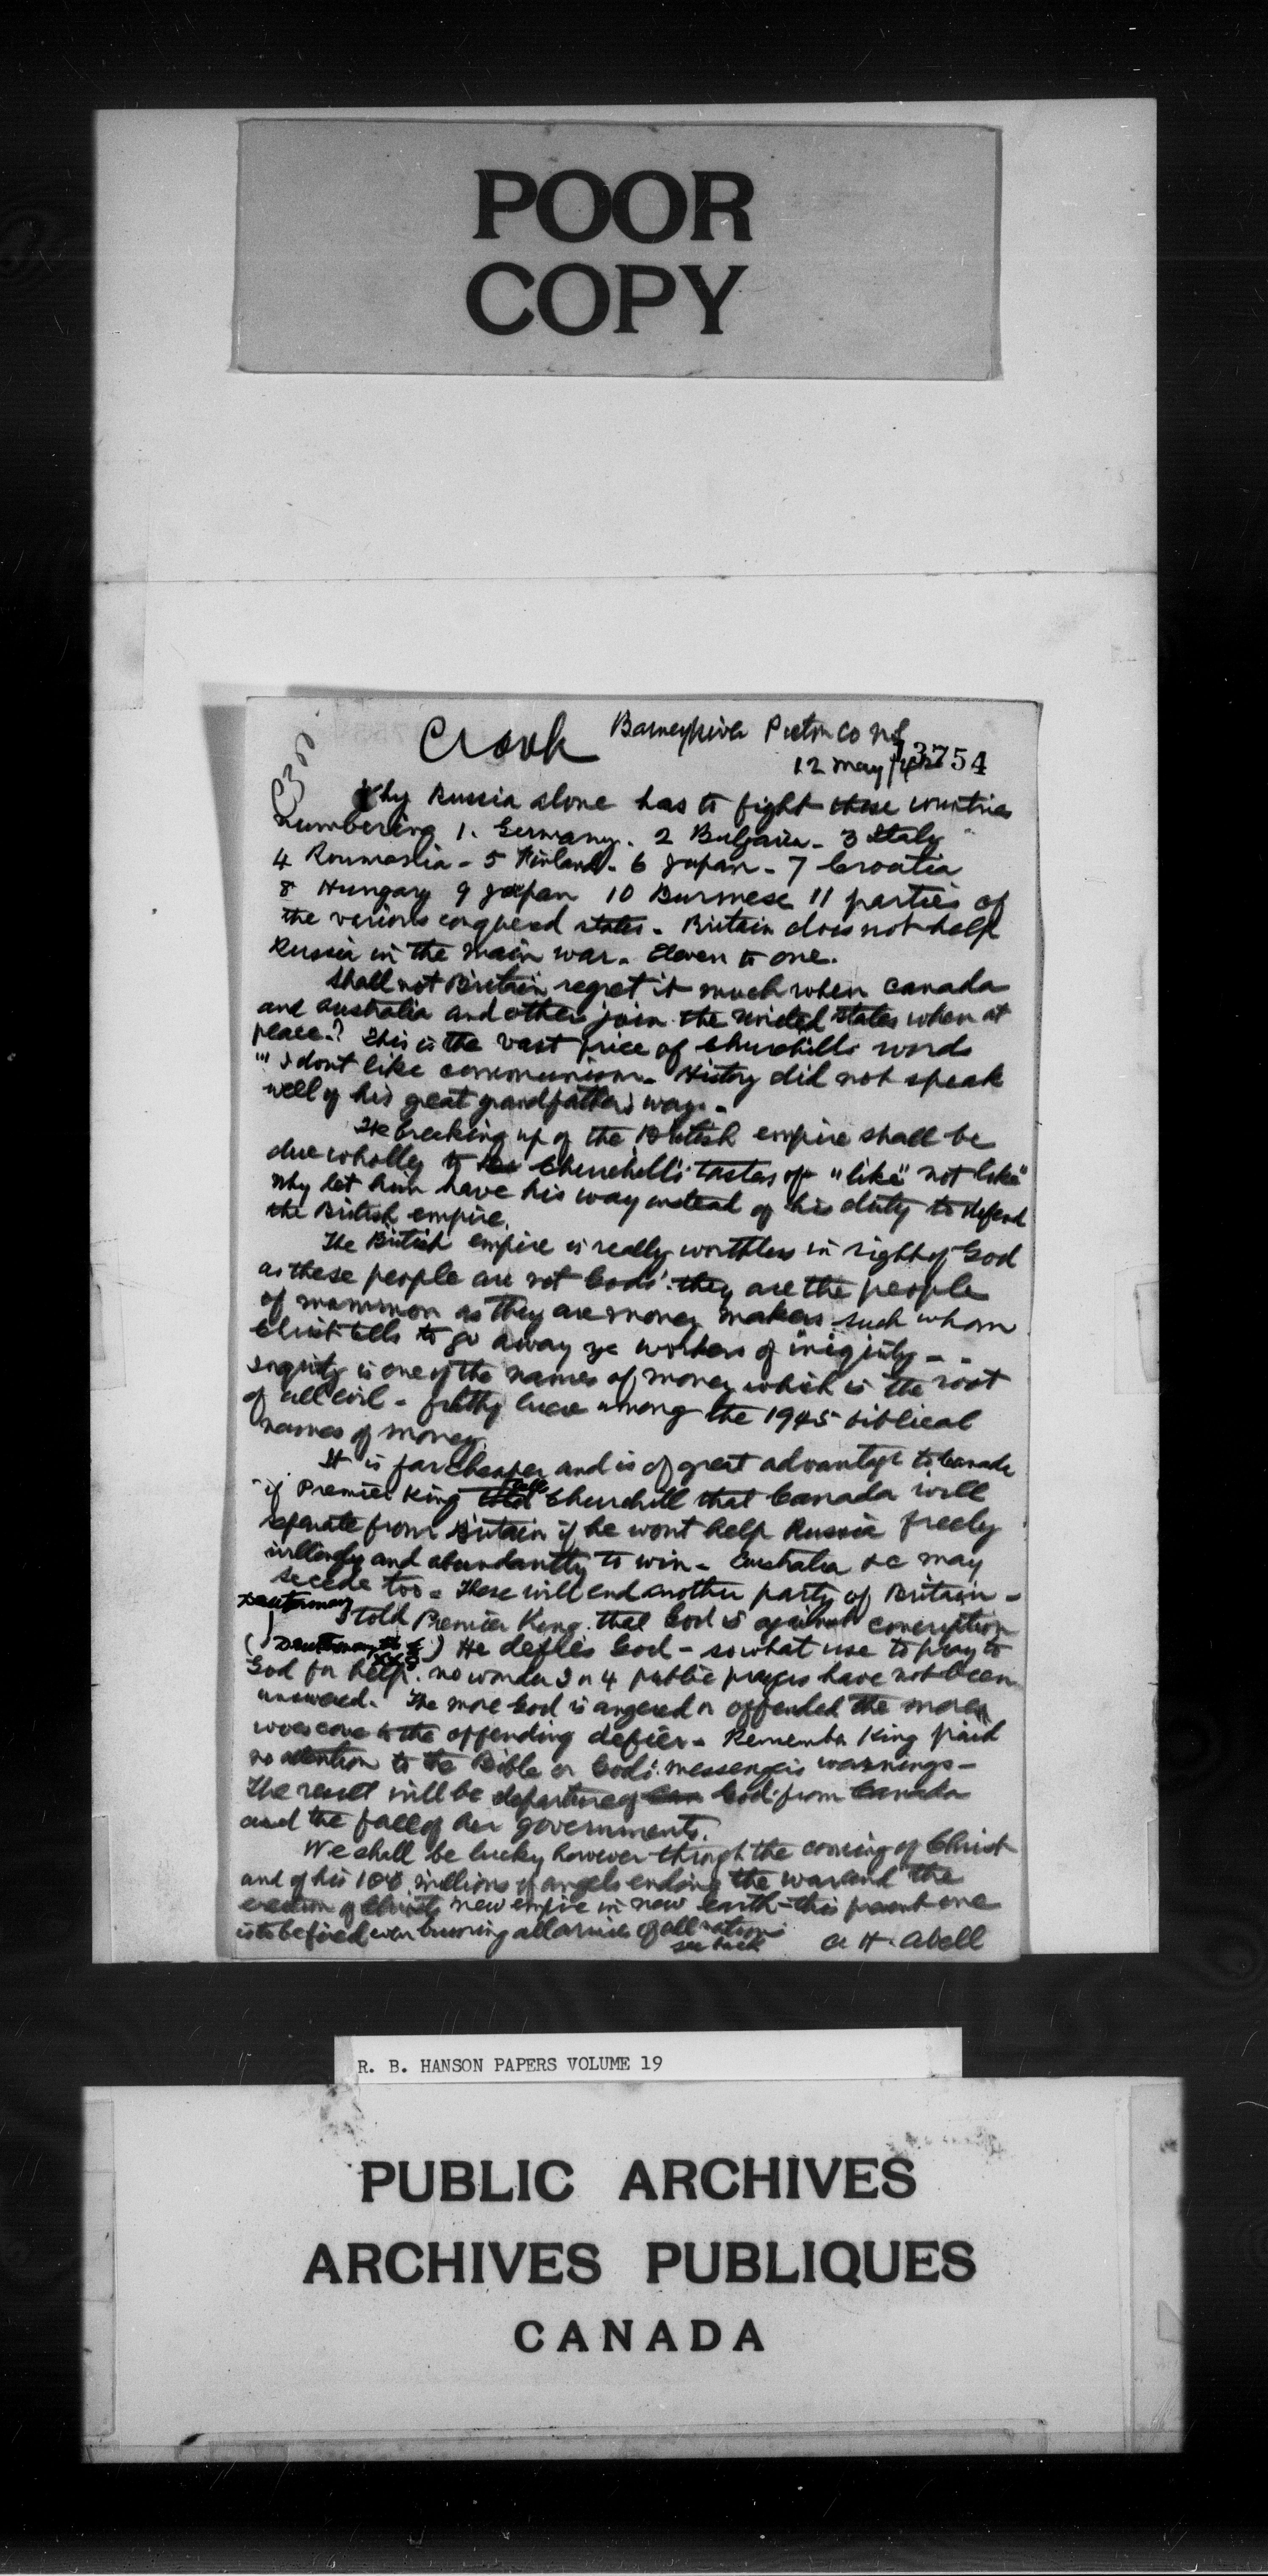 POOR
COPY
Crook Barneysriver Pictou Co NS
13754
12 May
Why Russia alone has to fight these countries
numbering 1. Germany. 2 Bulgaria - 3 Italy
4 Roumania - 5 Finland - 6 Japan - 7 Croatia
8 Hungary 9 Japan 10 Burmese 11 parties of
the various conquered states - Britain does not help
Russia in the main war. Eleven to one.
Shall not Britain regret it much when Canada
and Australia and others join the United States when at
peace? This is the vast price of Churchills words
"I dont like communism - History did not speak
well of his great grandfathers ways -
The breaking up of the British empire shall be
due wholly to Churchill's tastes of "like" "not like"
Why let him have his way instead of his duty to defend
the British empire.
The British empire is really worthless in sight of God
as these people are not Gods'. they are the people
of mammon as they are money makers such whom
Christ tells to go away ye workers of iniquity - -
Iniquity is one of the names of money which is the root
of all evil - filthy lucre among the 1945 biblical
names of money.
It is far cheaper and is of great advantage to Canada
if Premier King tells Churchill that Canada will
separate from Britain if he wont help Russia freely
willingly and abundantly to win - Australia &c may
secede too - These will end another party of Britain -
I told Premier King that God is against conscription
(Deuteronomy) He defies God - so what use to pray to
God for help. no wonder 3 or 4 public prayers have not been
answered. The more God is angered or offended the more
woes come to the offending defier - Remember King paid
no attention to the Bible or God's messenger's warnings -
The result will be departure of God from Canada
and the fall of her governments.
We shall be lucky however through the coming of Christ
and of his 100 millions of angels ending the war and the
erection of Christs new empire in new earth - this present one
is to be fired even burning all armies of all nations
see back A H. Abell
R. B. HANSON PAPERS VOLUME 19
PUBLIC ARCHIVES
ARCHIVES PUBLIQUES
CANADA